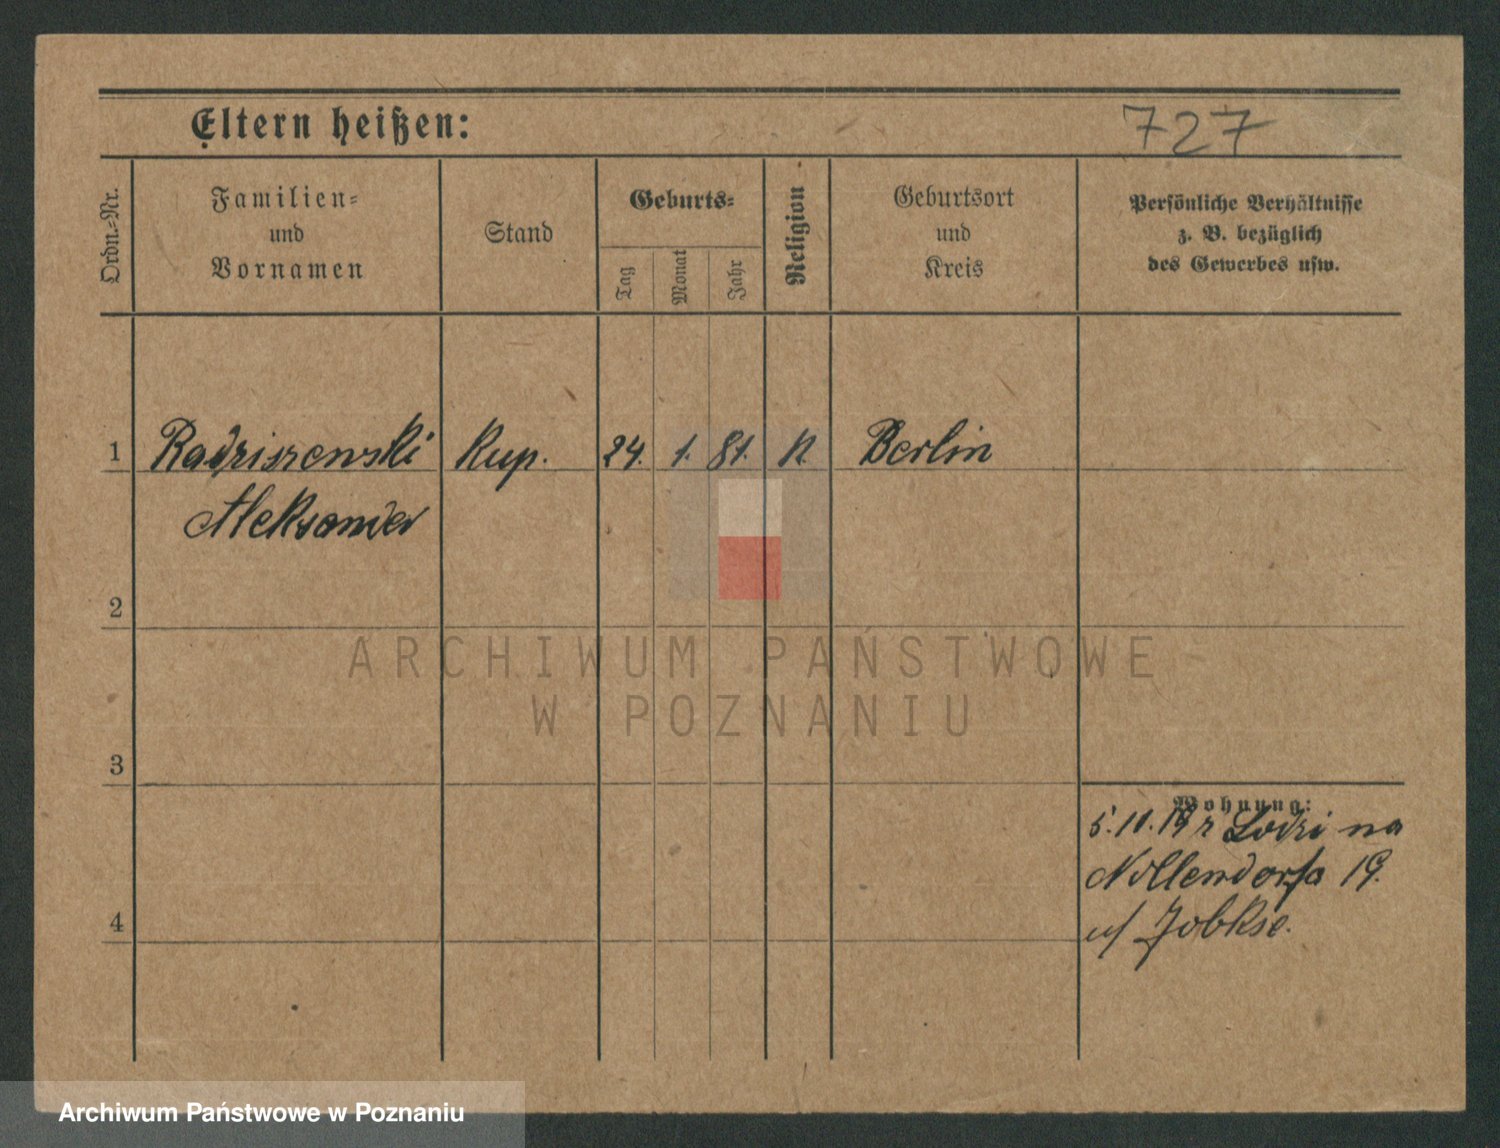 Eltern heißen:
727
Ordn.-Nr.
Familien-
und
Vornamen
Stand
Geburts-
Tag
Monat
Jahr
Religion
Geburtsort
und
Kreis
Persönliche Verhältnisse
z. B. bezüglich
des Gewerbes usw.
1 Radziszewski Kup. 24. 1. 81. K. Berlin
Aleksander
2
ARCHIWUM PAŃSTWOWE
W POZNANIU
3
Wohnung:
5.11.19 z Łodzi na
Nollendorfa 19.
4
u/ Jobkse.
Archiwum Państwowe w Poznaniu